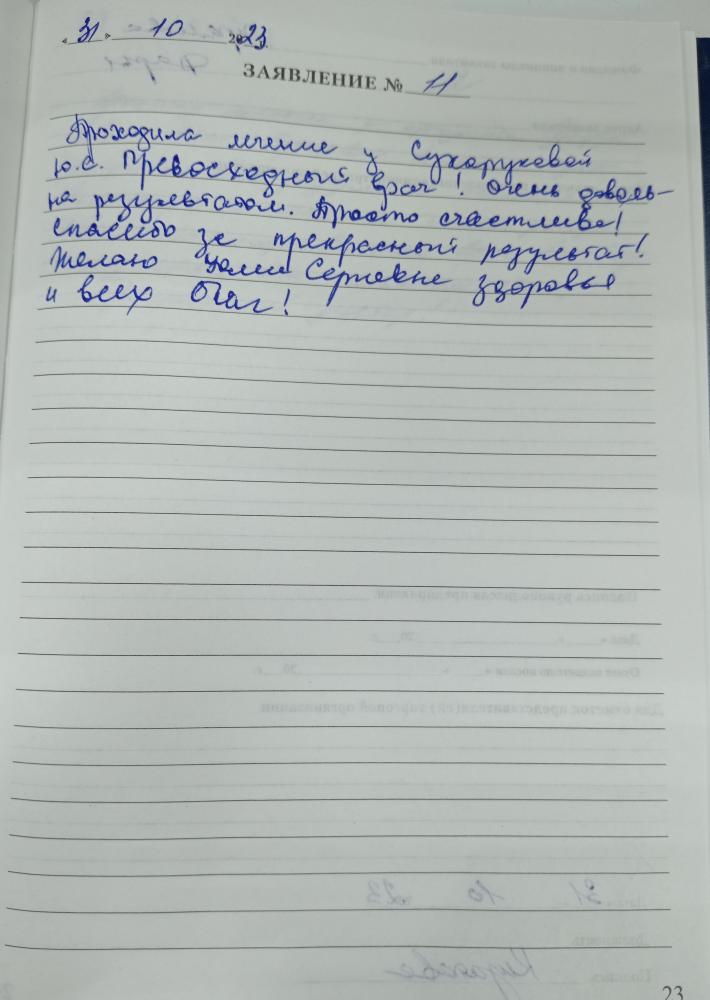 « 31 » 10 2023
ЗАЯВЛЕНИЕ № 11
Проходила лечение у Сухоруковой
Ю.С. Превосходный врач! Очень доволь-
на результатом. Просто счастлива!
Спасибо за прекрасный результат!
Желаю Юлии Сергеевне здоровья
и всех благ!
23